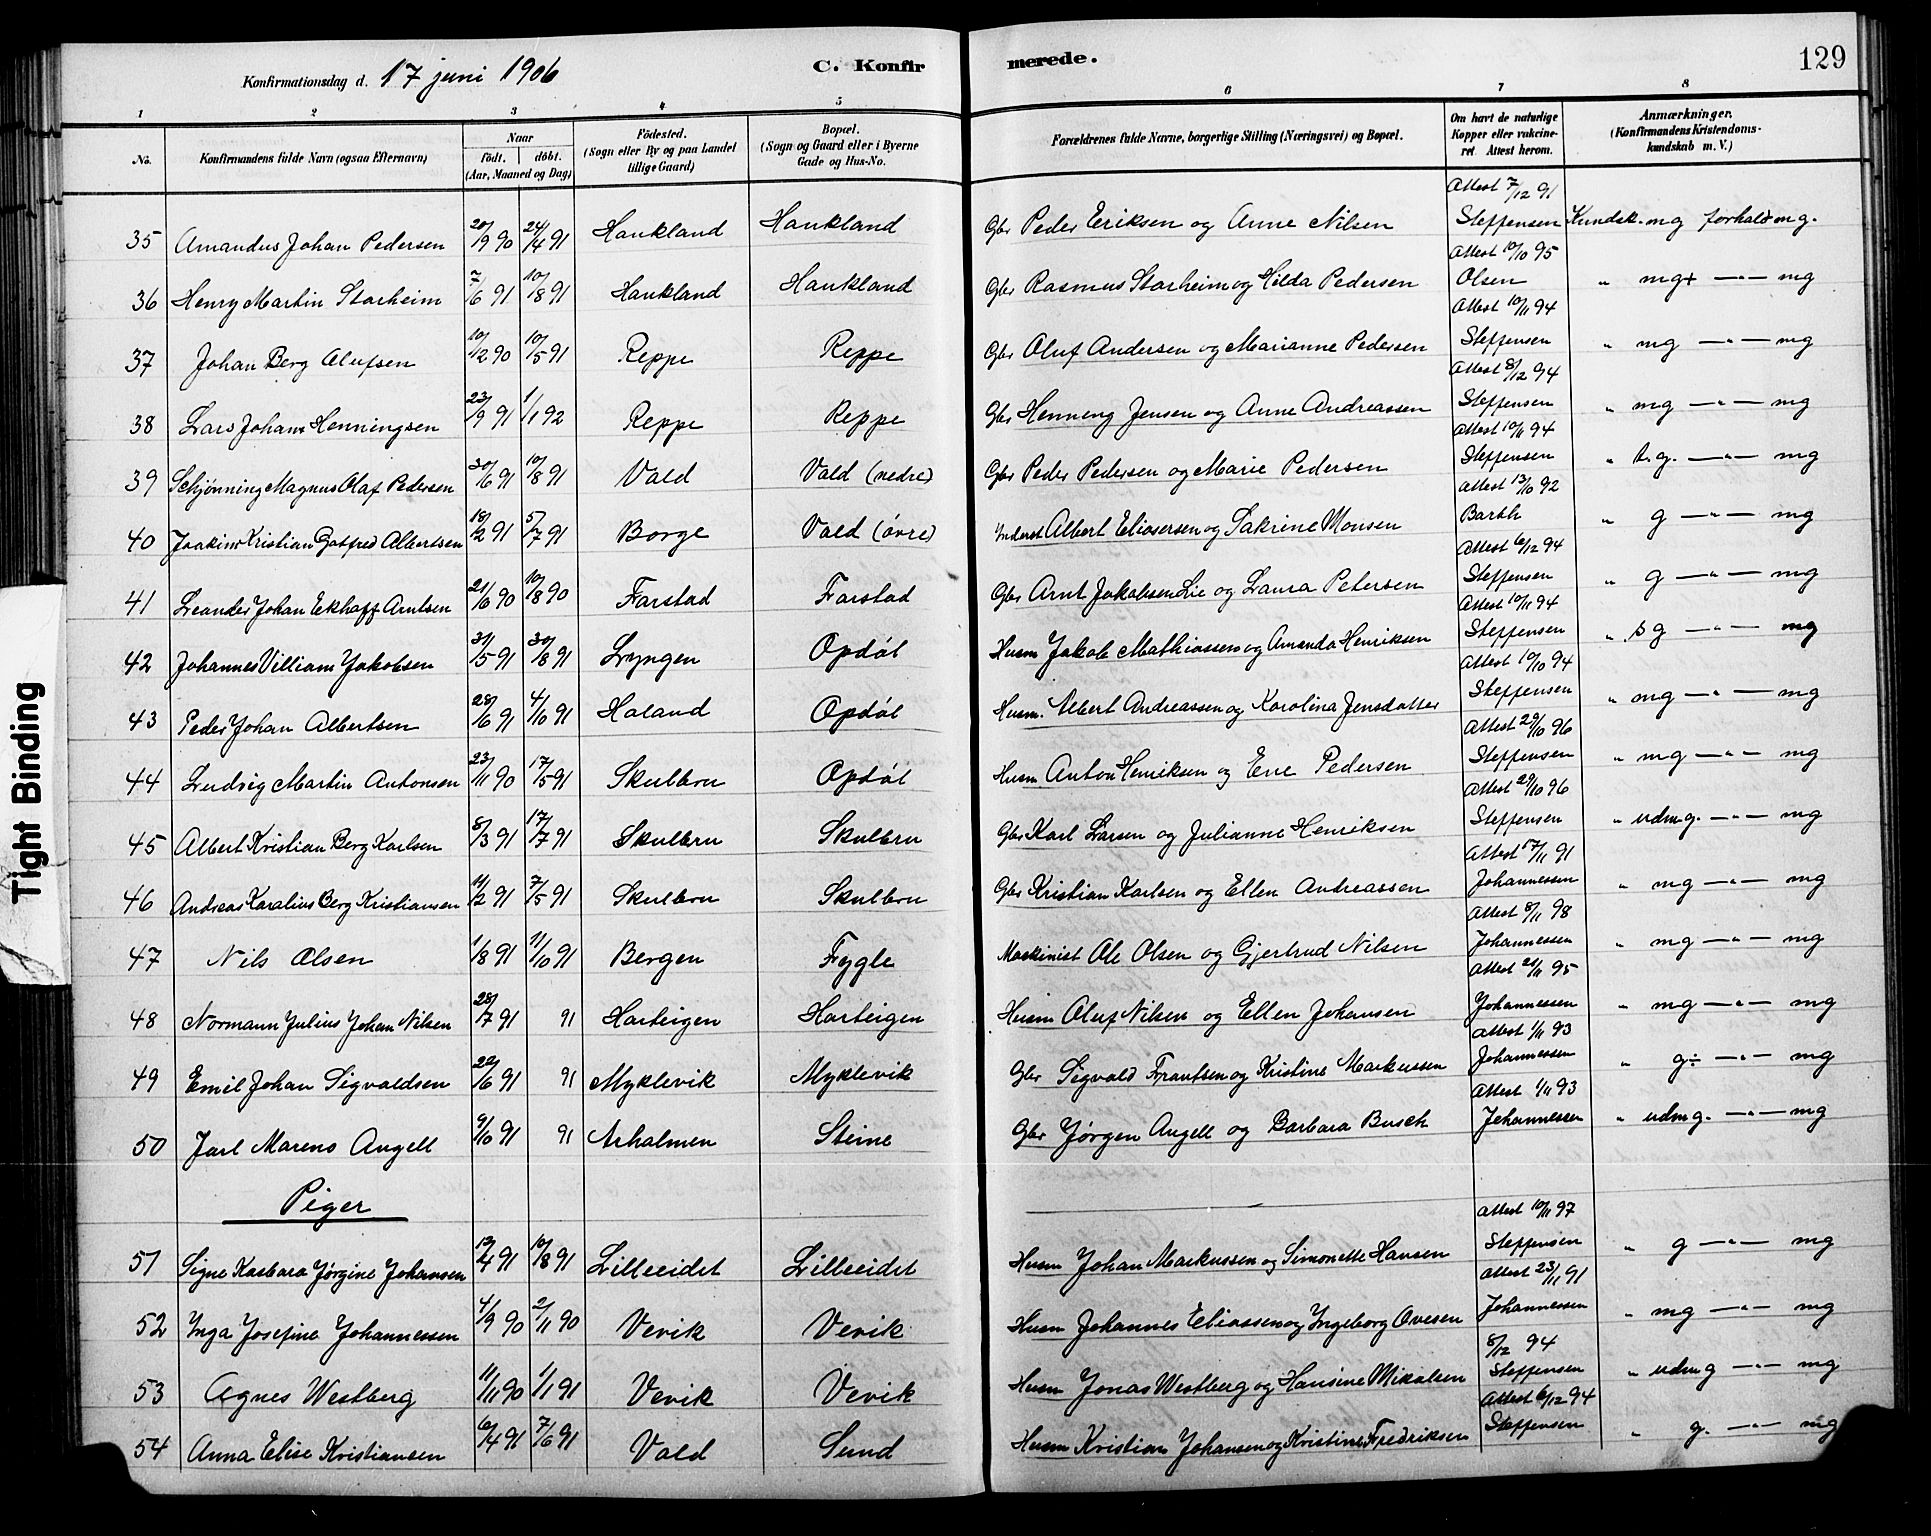 Konfirmationsdag d. 17 juni 1906 C. Konfirmerede. 129
1 2 3 4 5 6 7 8
No. Konfirmandens fulde Navn (ogsaa Efternavn) Naar født. døbt. (Aar, Maaned og Dag) Fødested. (Sogn eller By og paa Landet tillige Gaard) Bopæl. (Sogn og Gaard eller i Byerne Gade og Hus-No. Forældrenes fulde Navne, borgerlige Stilling (Næringsvei) og Bopæl. Om havt de naturlige Kopper eller vakcineret. Attest herom. Anmærkninger. (Konfirmandens Kristendomskundskab m. V.)
35 Amandus Johan Pedersen 20/9 90 24/4 91 Haukland Haukland Gbr Peder Eriksen og Anne Nilsen Attest 7/12 91 Steffensen Kundsk. mg forhald mg.
36 Henry Martin Starheim 7/6 91 10/8 91 Haukland Haukland Gbr Rasmus Starheim og Hilda Pedersen Attest 10/10 95 Olsen " mg+ —"— mg
37 Johan Berg Olufsen 10/12 90 10/5 91 Reppe Reppe Gbr Oluf Andersen og Marianne Pedersen Attest 10/11 94 Steffensen " mg —"— mg
38 Lars Johans Henningsen 23/9 91 1/1 92 Reppe Reppe Gbr Henning Jensen og Anne Andreassen Attest 8/12 94 Steffensen " mg —"— mg
39 Schjønning Magnus Olaf Pedersen 30/6 91 10/8 91 Vald Vald (nedre) Gbr Peder Pedersen og Marie Pedersen Attest 10/11 94 Steffensen " t.g. —"— mg
40 Joakim Kristian Gotfred Albertsen 18/2 91 5/7 91 Borge Vald (øvre) Inderst Albert Eliasersen og Sakrine Monsen Attest 13/10 92 Barth " g —"— mg
41 Leander Johan Ekhoff Arntsen 21/6 90 10/8 90 Farstad Farstad Gbr Arnt Jakobsen Lie og Laura Petersen Attest 6/12 94 Steffensen " g —"— mg
42 Johannes Villiam Jakobsen 31/5 91 30/8 91 Lyngen Opdøl Husm Jakob Mathiassen og Amanda Henriksen Attest 10/11 94 Steffensen " s g —"— mg
43 Peder Johan Albertsen 28/6 91 4/10 91 Holand Opdøl Husm. Albert Andreassen og Karolina Jensdatter Attest 10/10 94 Steffensen " mg —"— mg
44 Ludvig Martin Antonsen 23/11 90 17/5 91 Skulbru Opdøl Husm Anton Henriksen og Ere Pedersen Attest 29/10 96 Steffensen " mg —"— mg
45 Albert Kristian Berg Karlsen 8/3 91 17/7 91 Skulbru Skulbru Gbr Karl Larsen og Julianne Henriksen Attest 29/10 96 Steffensen " udmg. —"— mg
46 Andreas Karalius Berg Kristiansen 11/2 91 7/5 91 Skulbru Skulbru Gbr Kristian Karlsen og Ellen Andreassen Attest 17/11 91 Johannessen " mg —"— mg
47 Nils Olsen 1/8 91 11/10 91 Bergen Fygle Maskinist Ole Olsen og Gjertrud Nilsen Attest 8/11 98 Johannessen " mg —"— mg
48 Normann Julius Johan Nilsen 28/7 91 91 Harteigen Harteigen Husm Oluf Nilsen og Ellen Johansen Attest 21/11 95 Johannessen " mg —"— mg
49 Emil Johan Sigvaldsen 22/6 91 91 Myklevik Myklevik Gbr Sigvald Frantsen og Kristine Markussen Attest 1/11 93 Johannessen " g÷ —"— mg
50 Jarl Marens Angell 9/10 91 91 Arholmen Steine Gbr Jørgen Angell og Barbara Busch Attest 1/11 93 Johannessen " udmg. —"— mg
Piger
51 Signe Kasbara Jørgine Johansen 13/4 91 10/8 91 Lilleeidet Lilleeidet Husm Johan Markussen og Simonette Hansen Attest 10/11 97 Steffensen " g —"— mg
52 Inga Josefine Johannessen 4/9 90 2/11 90 Vevik Vevik Husm Johannes Eliassen og Ingeborg Ovesen Attest 23/11 91 Johannessen " mg —"— mg
53 Agnes Westberg 11/11 90 1/1 91 Vevik Vevik Husm Jonas Westberg og Hansine Mikalsen 8/12 94 Steffensen " udmg —"— mg
54 Anna Elise Kristiansen 6/4 91 7/6 91 Vald Sund Husm Kristian Johansen og Kristine Fredriksen Attest 6/12 94 Steffensen " g. —"— mg
Tight Binding